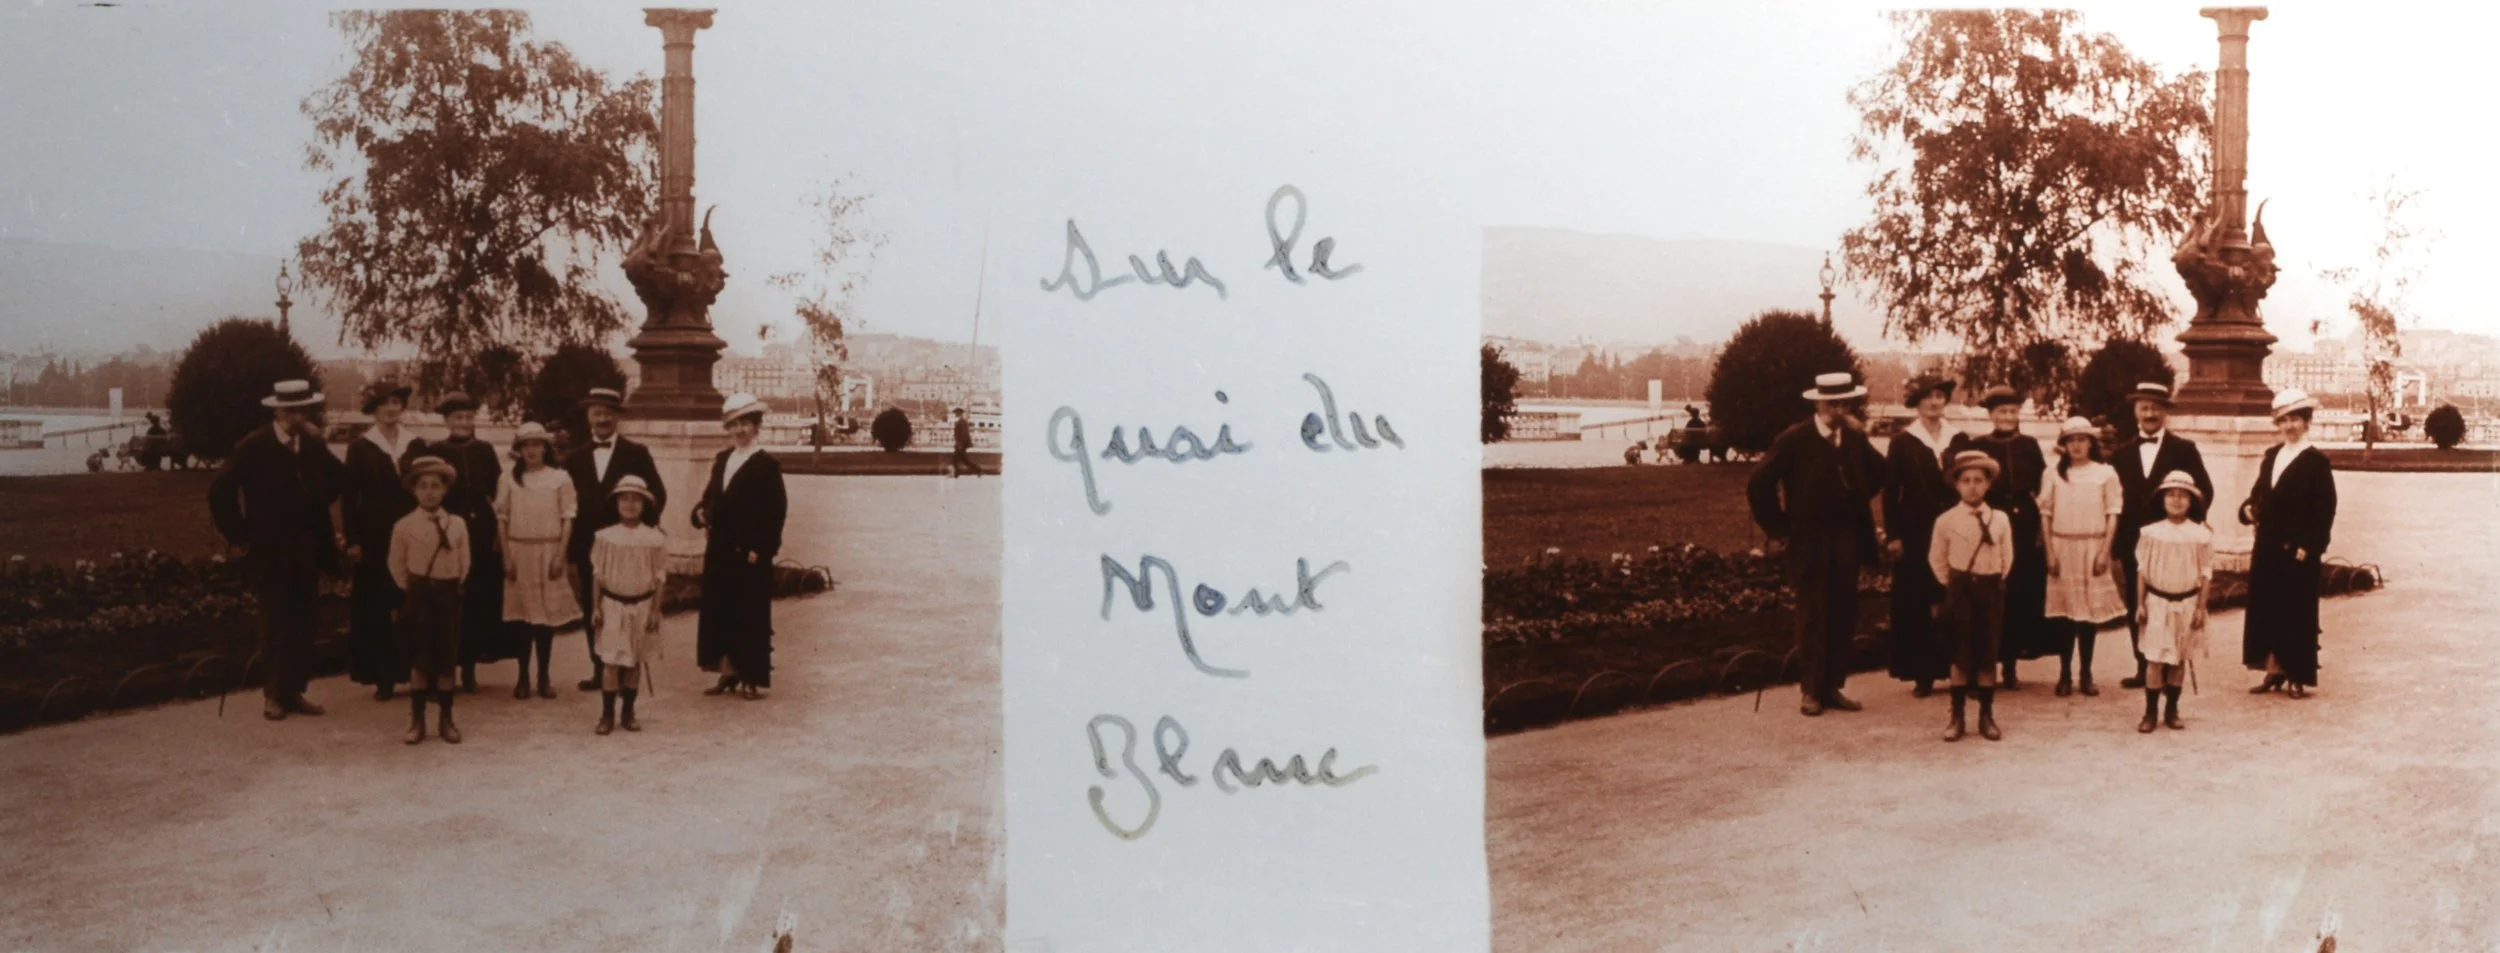 sur le
quai du
Mont
Blanc